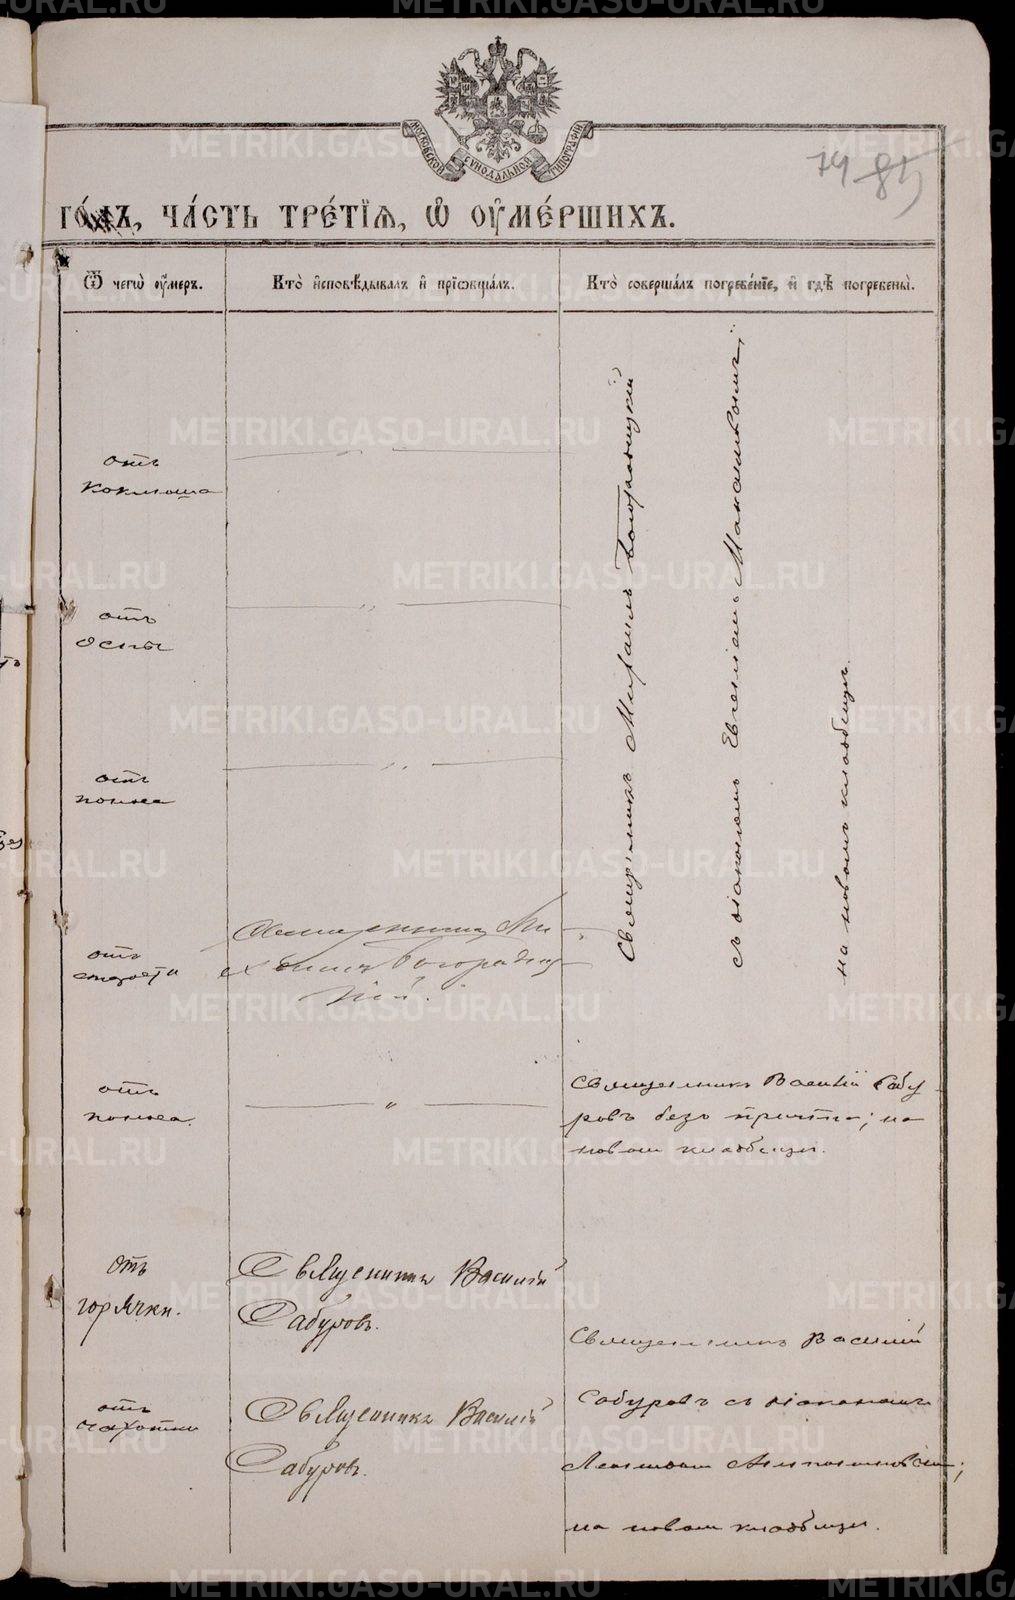 МОСКОВСКОЙ СУНОДАЛЬНОЙ ТИПОГРАФІИ
79 85
ГО́ДЪ, ЧА́СТЬ ТРЕ́ТІѦ, Ѡ҆ ОУ҆МЕ́РШИХЪ.
Ѿ чегѡ̀ оу҆́меръ.
Кто̀ и҆сповѣ́дывалъ и҆ прїѡбща́лъ.
Кто̀ соверша́лъ погребе́нїе, и҆ гдѣ̀ погребены̀.
отъ
коклюша
отъ
оспы
отъ
поноса
отъ
старости
Священникъ Ми-
хаилъ Богородиц-
кій.
отъ
поноса.
отъ
горячки.
Священникъ Василій
Сабуровъ.
отъ
чахотки
Священникъ Василій
Сабуровъ.
Священникъ Михаилъ Богородицкій
съ діакономъ Евгеніемъ
на новомъ кладбищѣ.
Священникъ Василій Сабу-
ровъ безъ причта; на
новомъ кладбищѣ.
Священникъ Василій
Сабуровъ съ діакономъ
на новомъ кладбищѣ.
METRIKI.GASO-URAL.RU